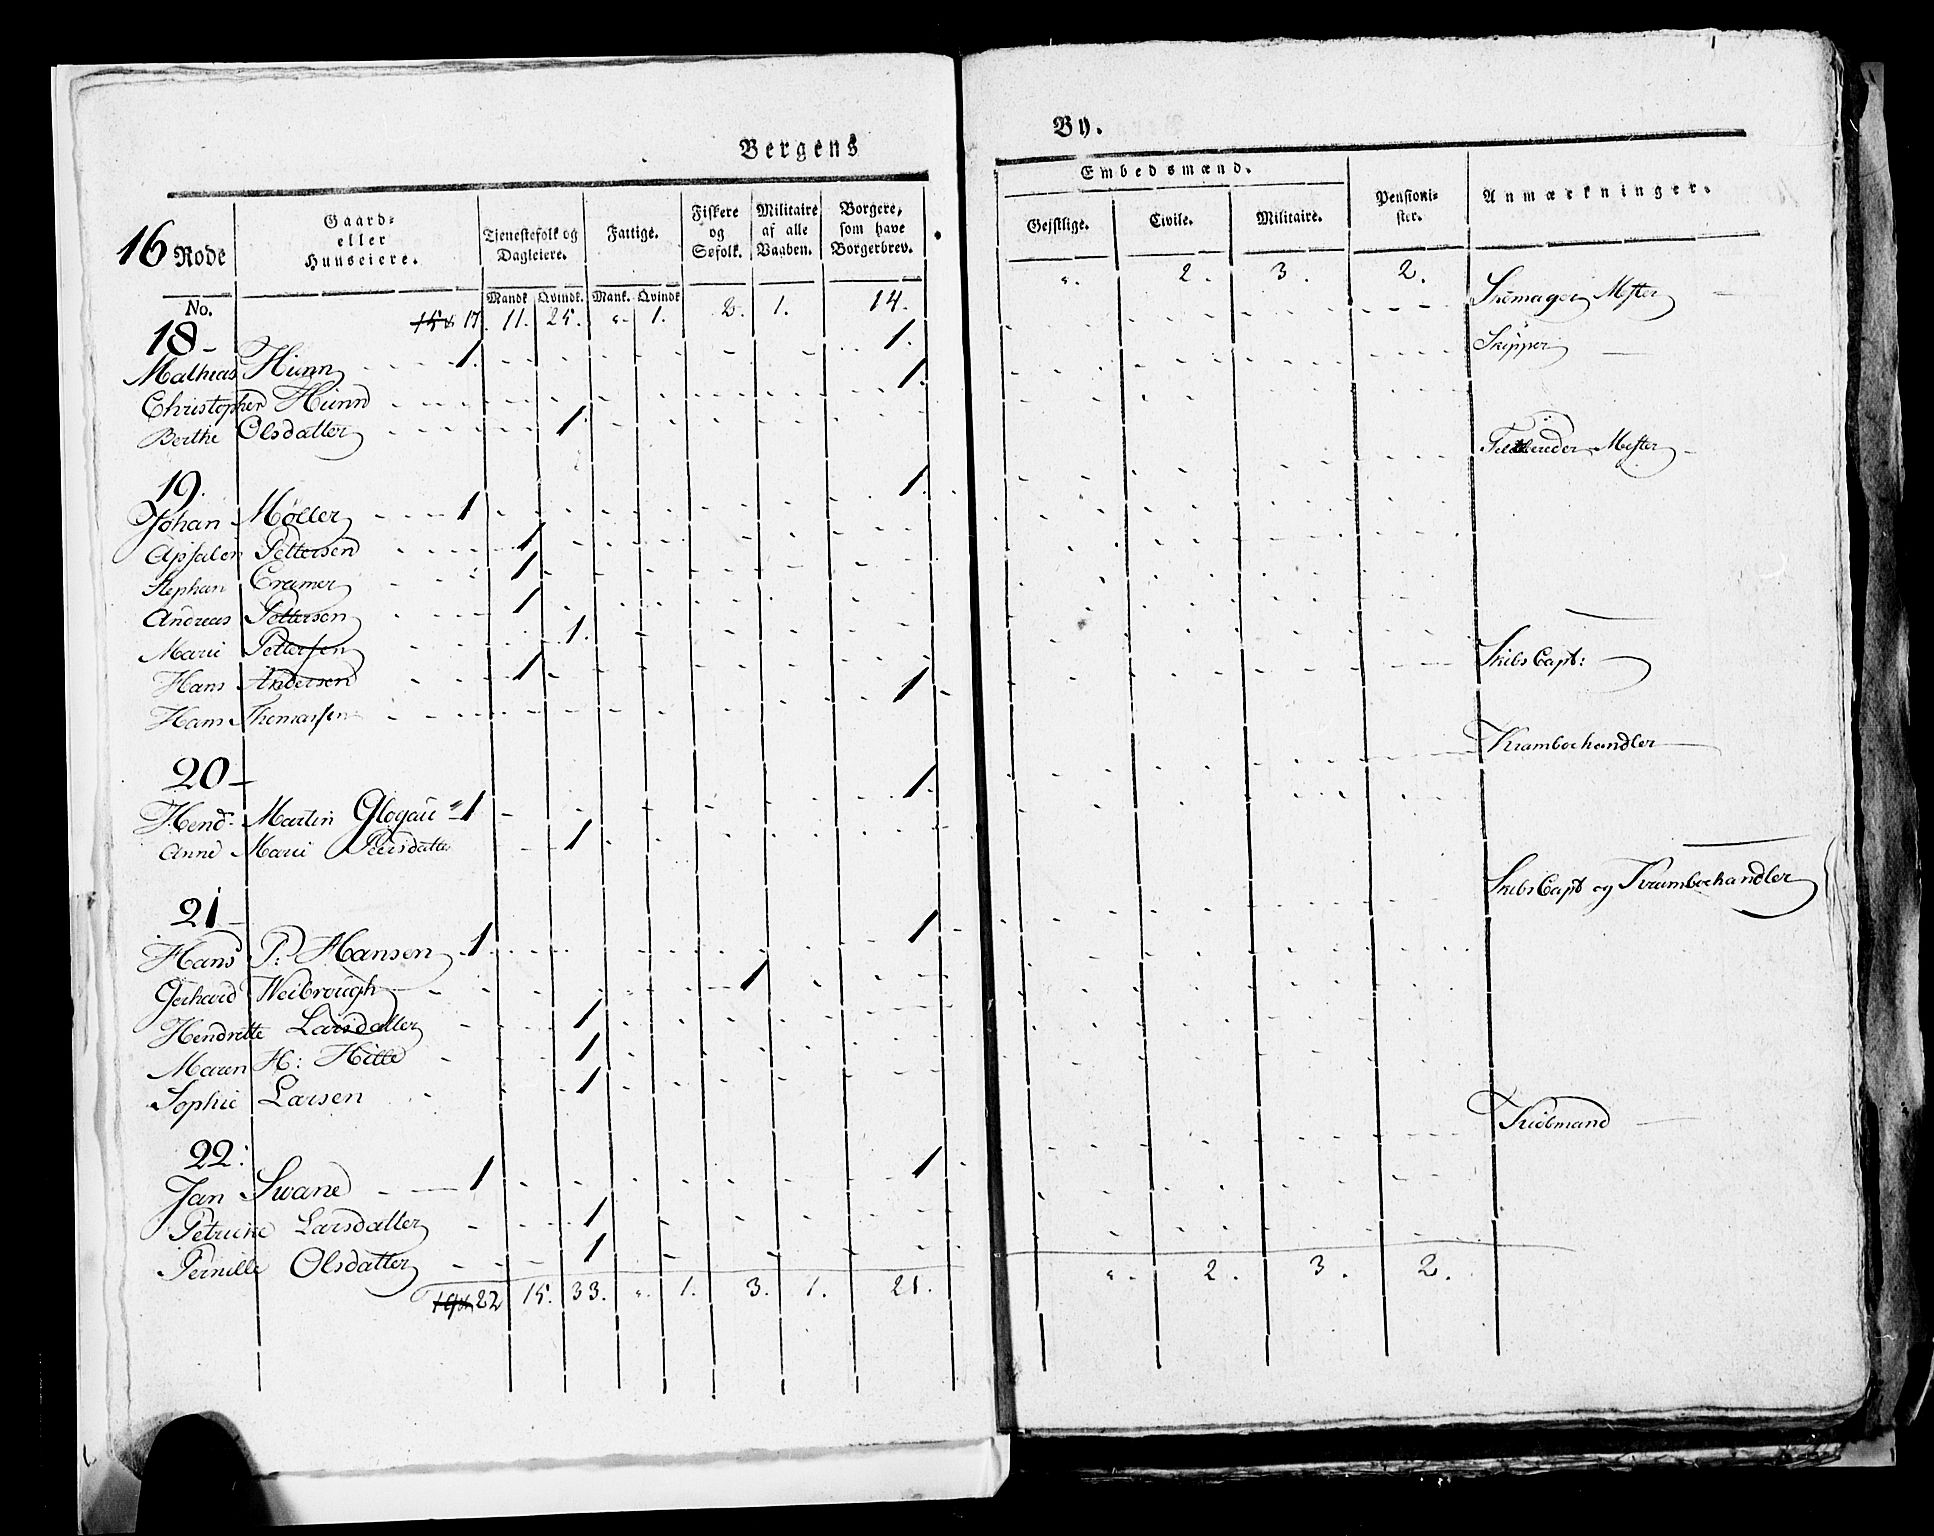 Bergens
By.
16 Rode
Gaard-
eller
Huuseiere.
Tienestefolk og
Dagleiere.
Fattige.
Fiskere
og
Søfolk.
Militaire
af alle
Vaaben.
Borgere,
som have
Borgerbrev.
Embedsmænd.
Gejstlige.
Civile.
Militaire.
Pensioni-
ster.
Anmærkninger.
No.
Mandk Qvindk. Mank. Qvindk
17. 11. 25. " 1. 2. 1. 14. " 2. 3. 2.
18
Mathias Hünn 1. 1. Skomager Mester
Christopher Hünn 1. Skipper
Berthe Olsdatter 1.
19.
Johan Møller 1 1. Mester
Apsalon Pettersen 1
Stephan Cramer 1
Andreas Pettersen 1
Marie Pettersen 1.
Hans Andersen 1
Hans Thomassen 1 Skibs Capt:
20
Hend. Martin Glogau 1 1 Kramboehandler
Anne Marie Peersdatter 1
21
Hans P: Hansen 1. 1 Skibs Capt og Kramboehandler
Gerhard Weibrough 1
Hendrette Larsdatter 1
Maren H: Hille 1
Sophie Larsen 1
22:
Jan Swane 1 1 Kiøbmand
Petricke Larsdatter 1
Pernille Olsdatter 1
22 15. 33. " 1. 3. 1. 21. " 2. 3. 2.